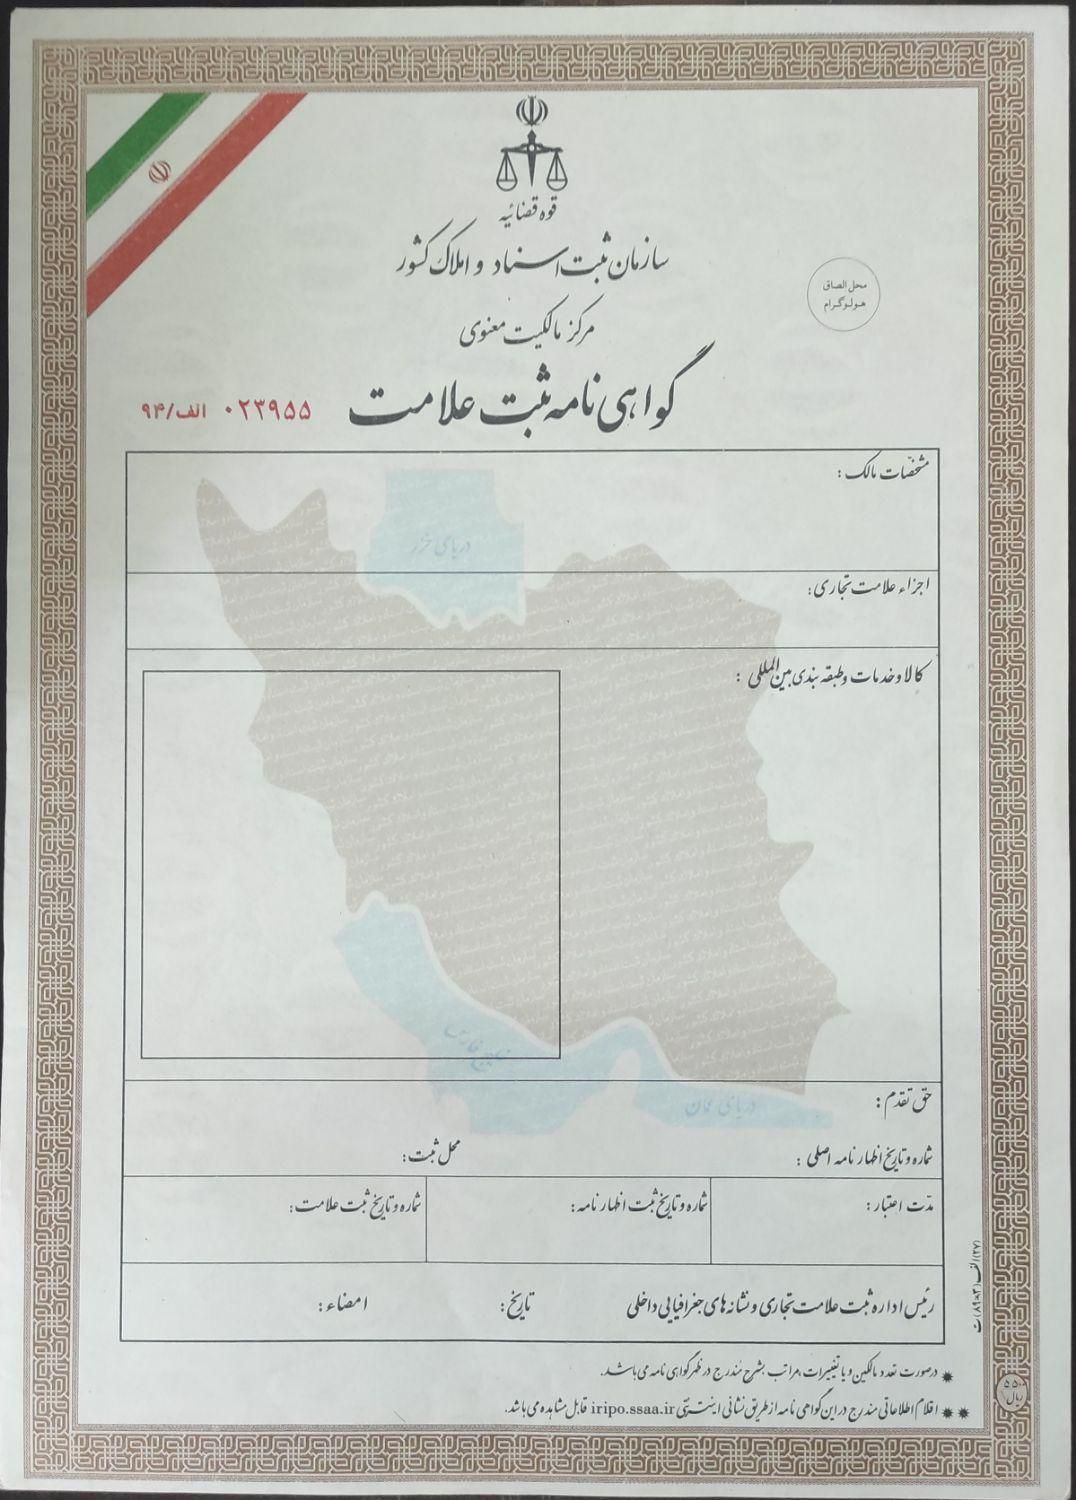 قوه قضائیه
سازمان ثبت اسناد و املاک کشور
محل الصاق
هولوگرام
مرکز مالکیت معنوی
گواهی نامه ثبت علامت
۰۲۳۹۵۵ الف/۹۴
مشخصات مالک :
دریای خزر
اجزاء علامت تجاری :
کالا و خدمات و طبقه بندی بین المللی :
خلیج فارس
دریای عمان
حق تقدم :
شماره و تاریخ اظهار نامه اصلی : محل ثبت :
مدّت اعتبار : شماره و تاریخ ثبت اظهار نامه : شماره و تاریخ ثبت علامت :
رئیس اداره ثبت علامت تجاری و نشانه های جغرافیایی داخلی تاریخ : امضاء :
✷ درصورت تعدد مالکین و یا تغییرات، مراتب بشرح مندرج در ظهر گواهی نامه می باشد.
✷✷ اقلام اطلاعاتی مندرج در این گواهی نامه از طریق نشانی اینترنتی iripo.ssaa.ir قابل مشاهده می باشد.
ریال